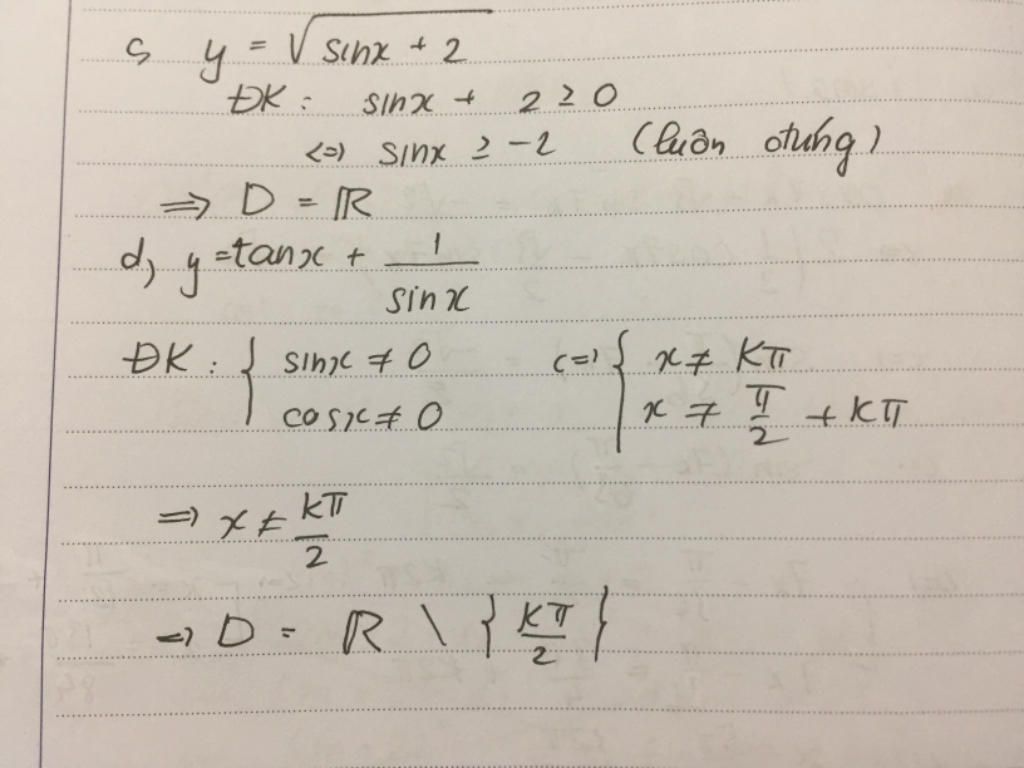 c, y = √(sinx + 2)
ĐK : sinx + 2 ≥ 0
<=> sinx ≥ -2 (luôn đúng)
=> D = ℝ
d, y = tanx + 1/sinx
ĐK : { sinx ≠ 0 <=> { x ≠ Kπ
cosx ≠ 0 x ≠ π/2 + Kπ
=> x ≠ kπ/2
=> D = ℝ \ { Kπ/2 }